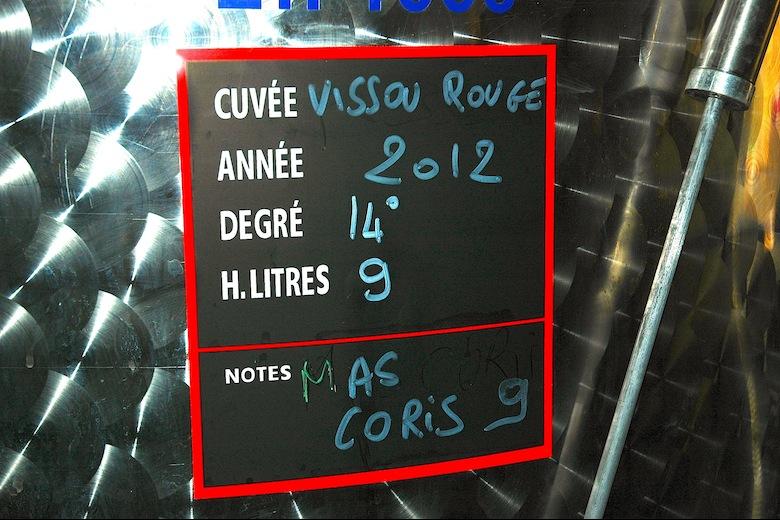 CUVÉE VISSOU ROUGE
ANNÉE 2012
DEGRÉ 14°
H.LITRES 9
NOTES MAS
CORIS 9